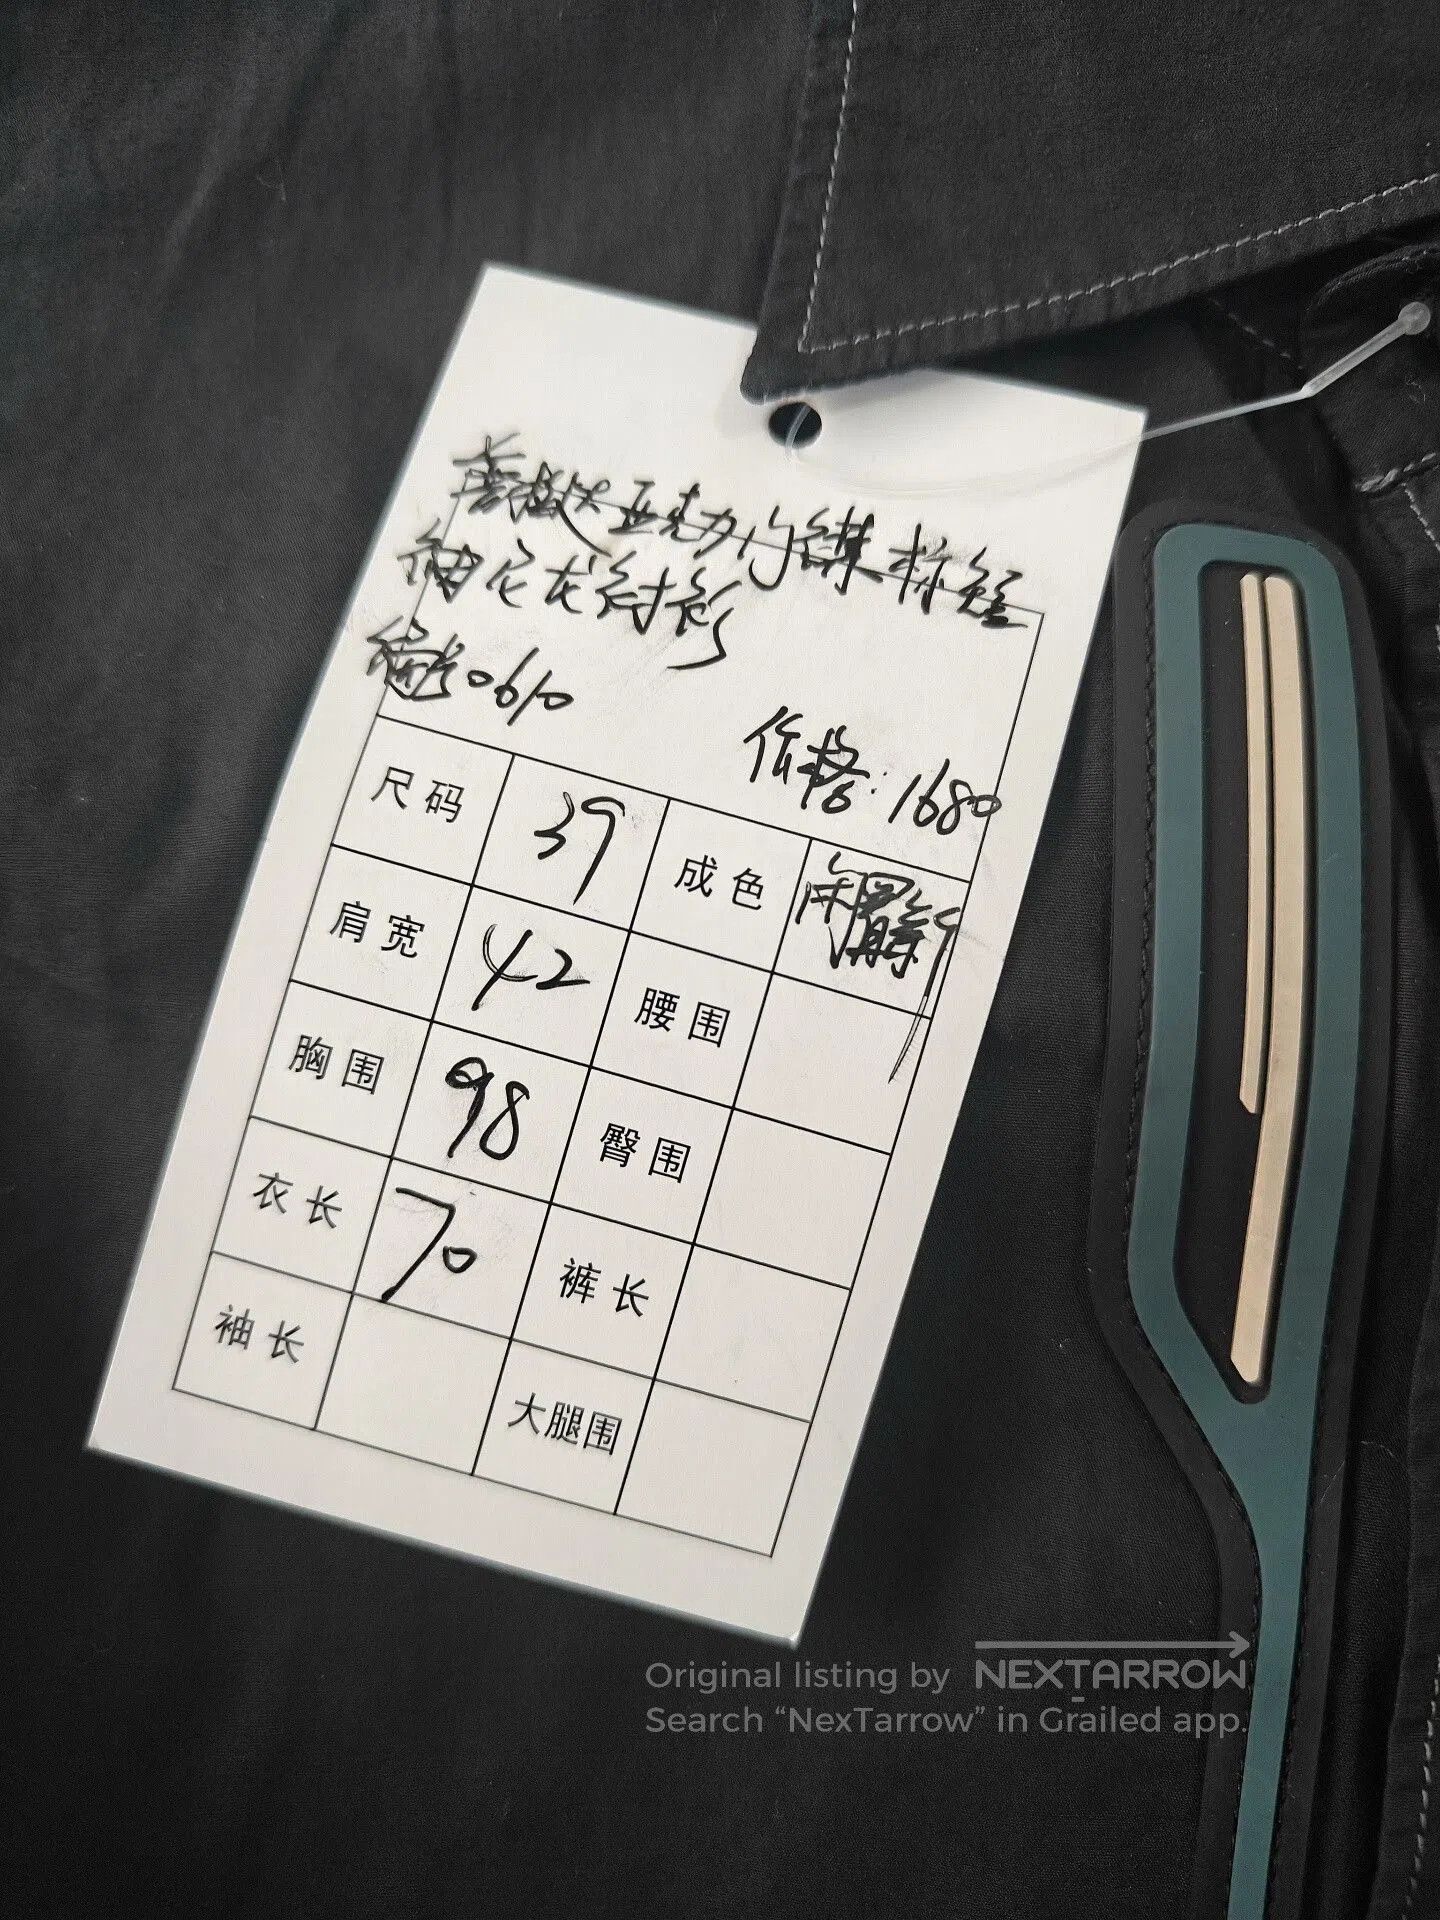 亚克力
袖尼龙衬衫
0610
价格:1680
尺码 39 成色
肩宽 42 腰围
胸围 98 臀围
衣长 70 裤长
袖长 大腿围
Original listing by NEXTARROW
Search “NexTarrow” in Grailed app.